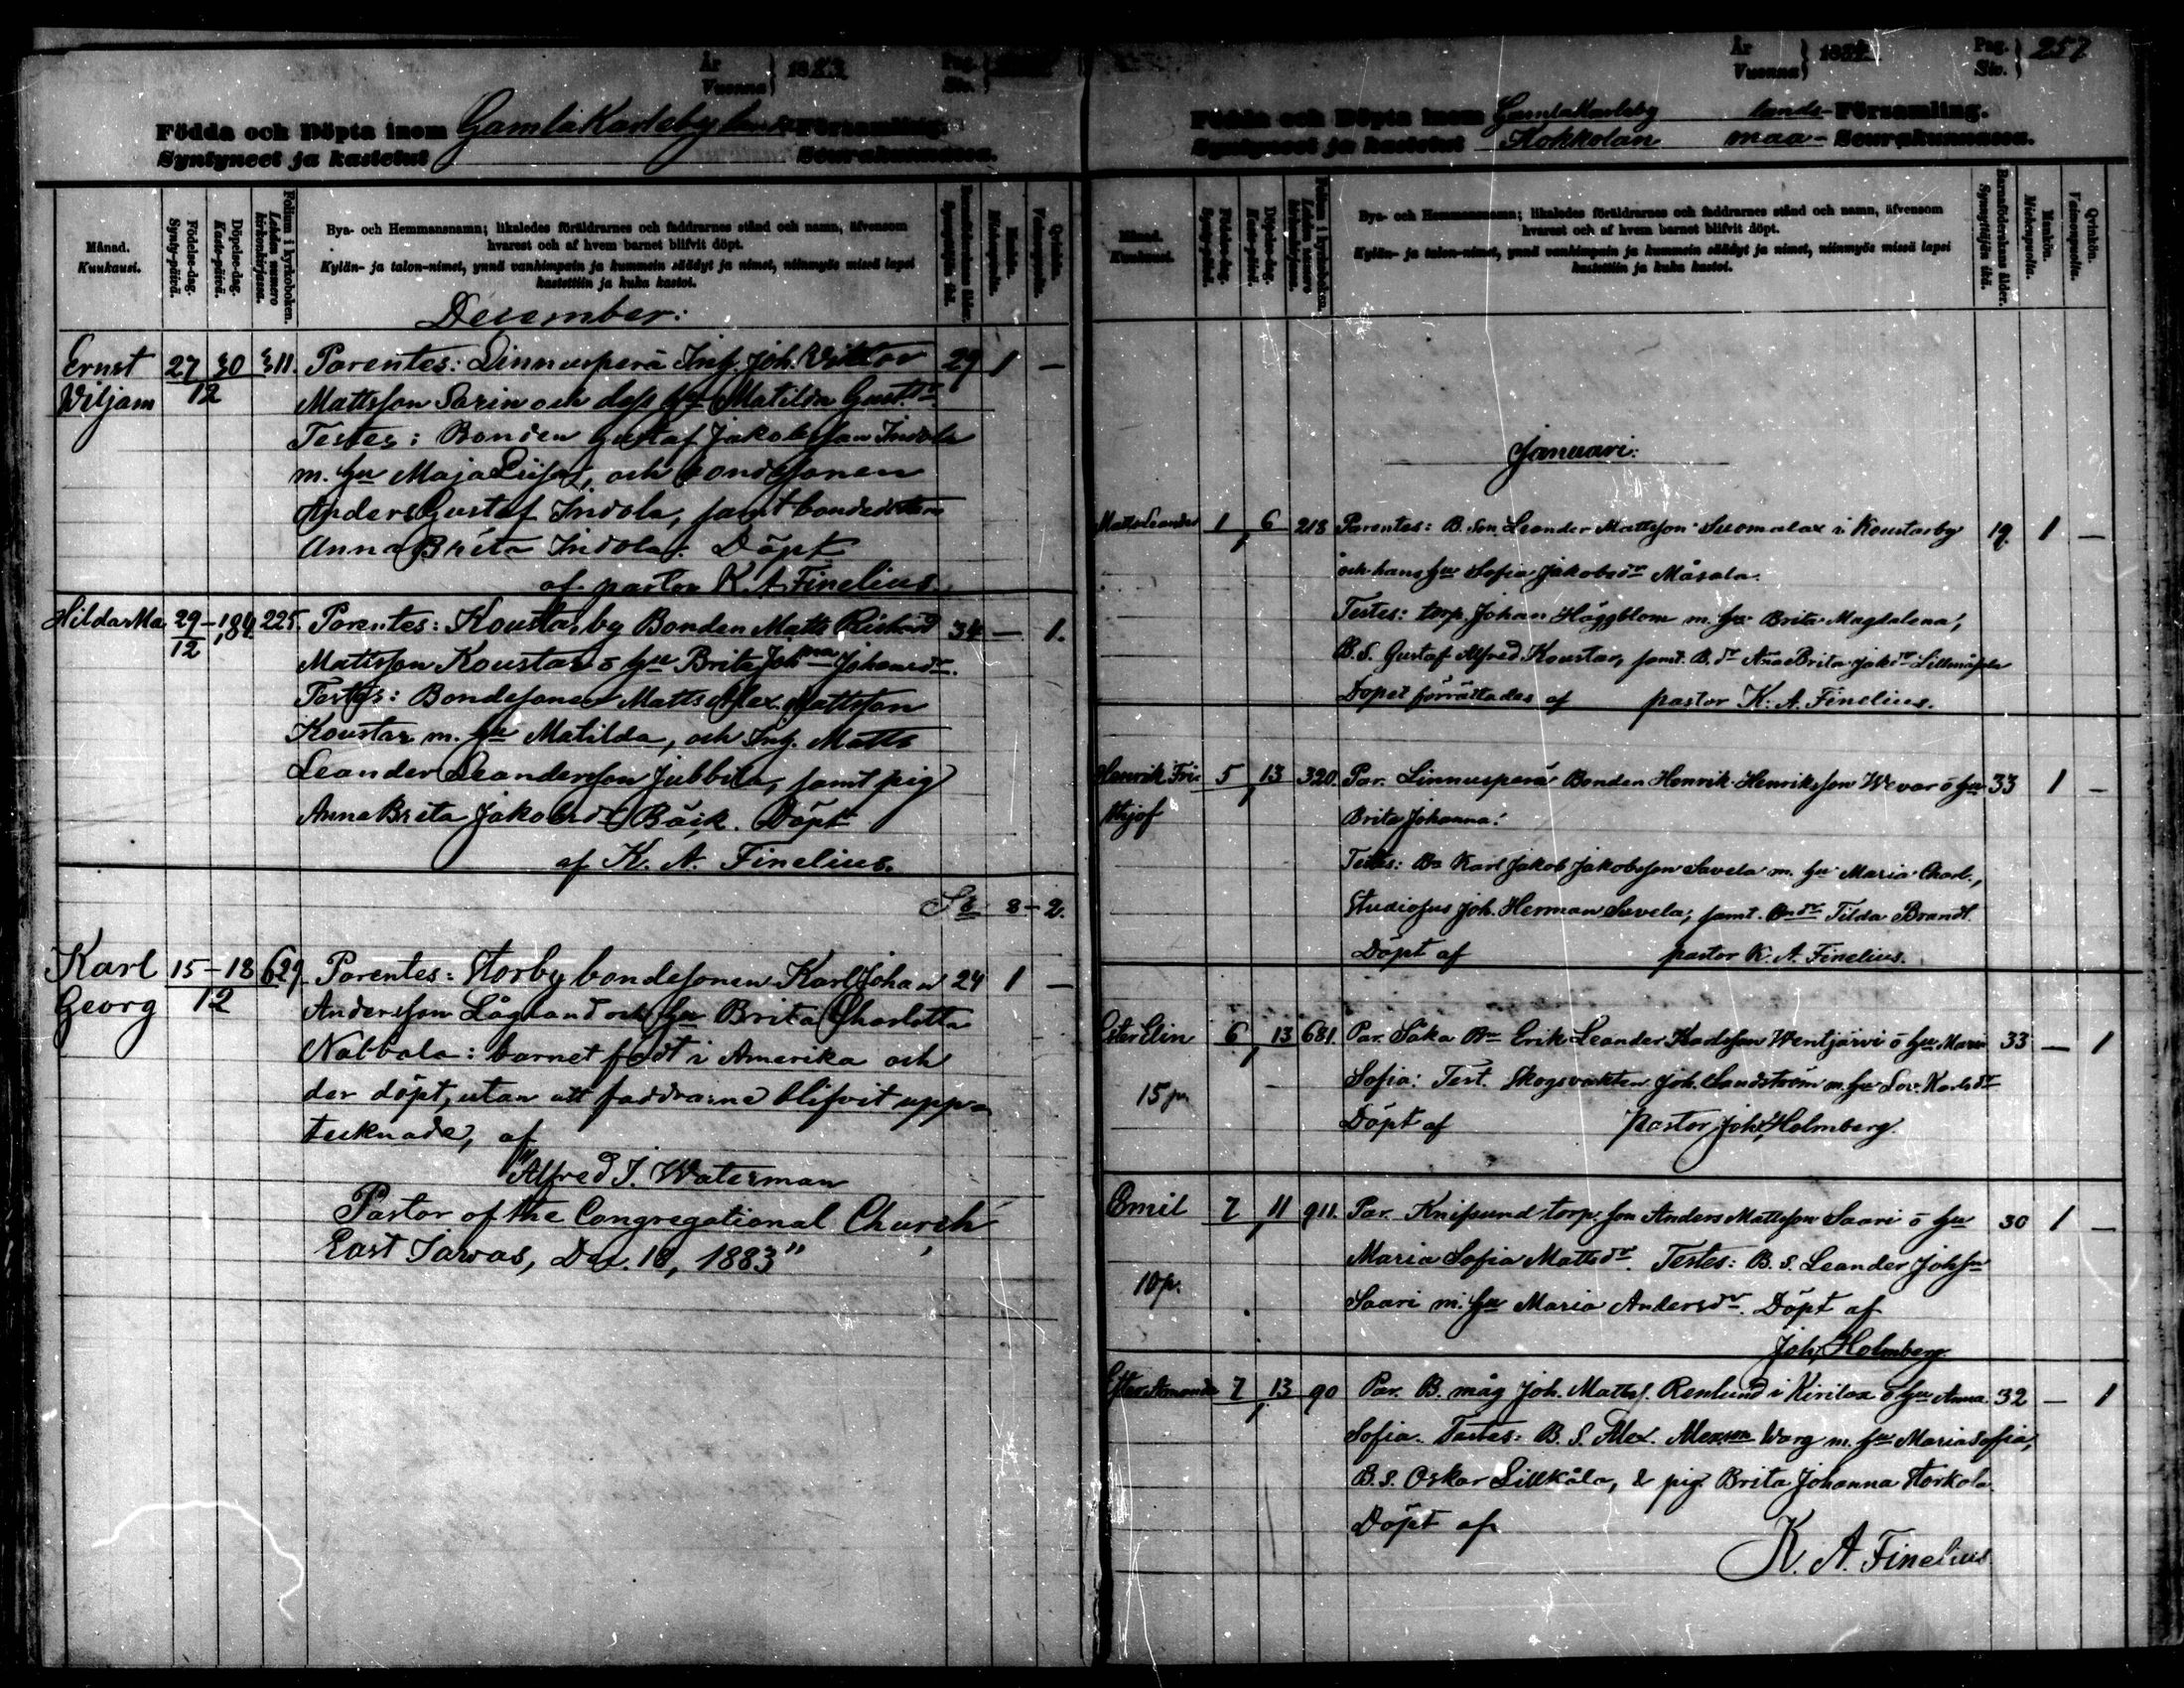 År
Vuonna
1883
Pag.
Siv.
Födda och Döpta inom Gamlakarleby lands Församling.
Syntyneet ja kastetut Seurakunnassa.
Månad.
Kuukausi.
Födelse-dag.
Synty-päivä.
Döpelse-dag.
Kaste-päivä.
Folium i kyrkoboken.
Lehden numero kirkonkirjassa.
Bya- och Hemmansnamn; likaledes föräldrarnes och faddrarnes stånd och namn, äfvensom
hvarest och af hvem barnet blifvit döpt.
Kylän- ja talon-nimet, ynnä vanhimpain ja kummein säädyt ja nimet, niinmyös missä lapsi
kastettiin ja kuka kastoi.
December:
Ernst 27 30 311. Parentes: Linnusperä Inh. Joh. Viktor 29 1 —
Wiljam 12 Mattsson Sarin och dess hu Matilda Gust.dr.
Testes: Bonden Gustaf Jakobsson Indola
m. hu Maja Liisa, och bondesonen
Anders Gustaf Indola, samt bondedottern
Anna Brita Indola. Döpt
af pastor K. A. Finelius.
Hilda Ma 29 — 1,84. 225. Parentes: Koustarby Bonden Matts Rickard 34 — 1.
12 Mattsson Koustar o hu Brita Johna Johansdr.
Testes: Bondesonen Matts Alex. Mattsson
Koustar m. hu Matilda, och Inh. Matts
Leander Leandersson Jubbila, samt pig
Anna Brita Jakobsdr Bäck. Döpt
af K. A. Finelius.
Sa 8 — 2.
Karl 15 — 18 629. Parentes: Storby bondesonen Karl Johan 24 1 —
Georg 12 Andersson Lågland och hu Brita Charlotta
Nabbala: barnet född i Amerika och
der döpt, utan att faddrarne blifvit upp-
tecknade, af
"Alfred J. Waterman
Pastor of the Congregational Church
East Tawas, Dec. 18, 1883"
År
Vuonna
1884
Pag.
Siv.
257
Födda och Döpta inom Gamlakarleby lands- Församling.
Syntyneet ja kastetut Kokkolan maa- Seurakunnassa.
Månad.
Kuukausi.
Födelse-dag.
Synty-päivä.
Döpelse-dag.
Kaste-päivä.
Folium i kyrkoboken.
Lehden numero kirkonkirjassa.
Bya- och Hemmansnamn; likaledes föräldrarnes och faddrarnes stånd och namn, äfvensom
hvarest och af hvem barnet blifvit döpt.
Kylän- ja talon-nimet, ynnä vanhimpain ja kummein säädyt ja nimet, niinmyös missä lapsi
kastettiin ja kuka kastoi.
Barnaföderskans ålder.
Synnyttäjän ikä.
Mankön.
Miehenpuolta.
Qvinkön.
Vaimonpuolta.
Januari:
Matts Leander 1 6 218 Parentes: B. son Leander Mattsson Suomalax i Koustarby 19. 1 —
1 och hans hu Sofia Jakobsdr Måsala.
Testes: torp. Johan Häggblom m. hu Brita Magdalena,
B. S. Gustaf Alfred Koustar, samt. B. dr Ana Brita Jakdr Lillmåsala
Dopet förrättades af pastor K. A. Finelius.
Henrik Fri- 5 13 320. Par. Linnusperä Bonden Henrik Henriksson Wevar o hu 33 1 —
thjof 1 Brita Johanna.
Testes: Bn Karl Jakob Jakobsson Savela m. hu Maria Charl.,
Studiosus Joh. Herman Savela, samt. Bndr Tilda Brandt.
Döpt af pastor K. A. Finelius.
Ester Elin 6 13 681. Par. Såka Bn Erik Leander Karlsson Wentjärvi o hu Maria 33 — 1
1 Sofia: Test. Skogsvakten Joh. Sandström m. hu Lov. Karlsdr
15 p. Döpt af Pastor Joh. Holmberg.
Emil 7 11 911. Par. Knifsund torp. son Anders Mattsson Saari o hu 30 1 —
1 Maria Sofia Mattsdr. Testes: B. S. Leander Johssn
10 p. Saari m. hu Maria Andersdr. Döpt af
Joh. Holmberg.
Ester Amanda 7 13 90 Par. B. måg Joh. Matts. Renlund i Kirilax o hu Anna 32 — 1
1 Sofia. Testes: B. S. Alex. Alexson Warg m. hu Maria Sofia,
B. S. Oskar Lillkåla, & pig. Brita Johanna Storkola.
Döpt af
K. A. Finelius